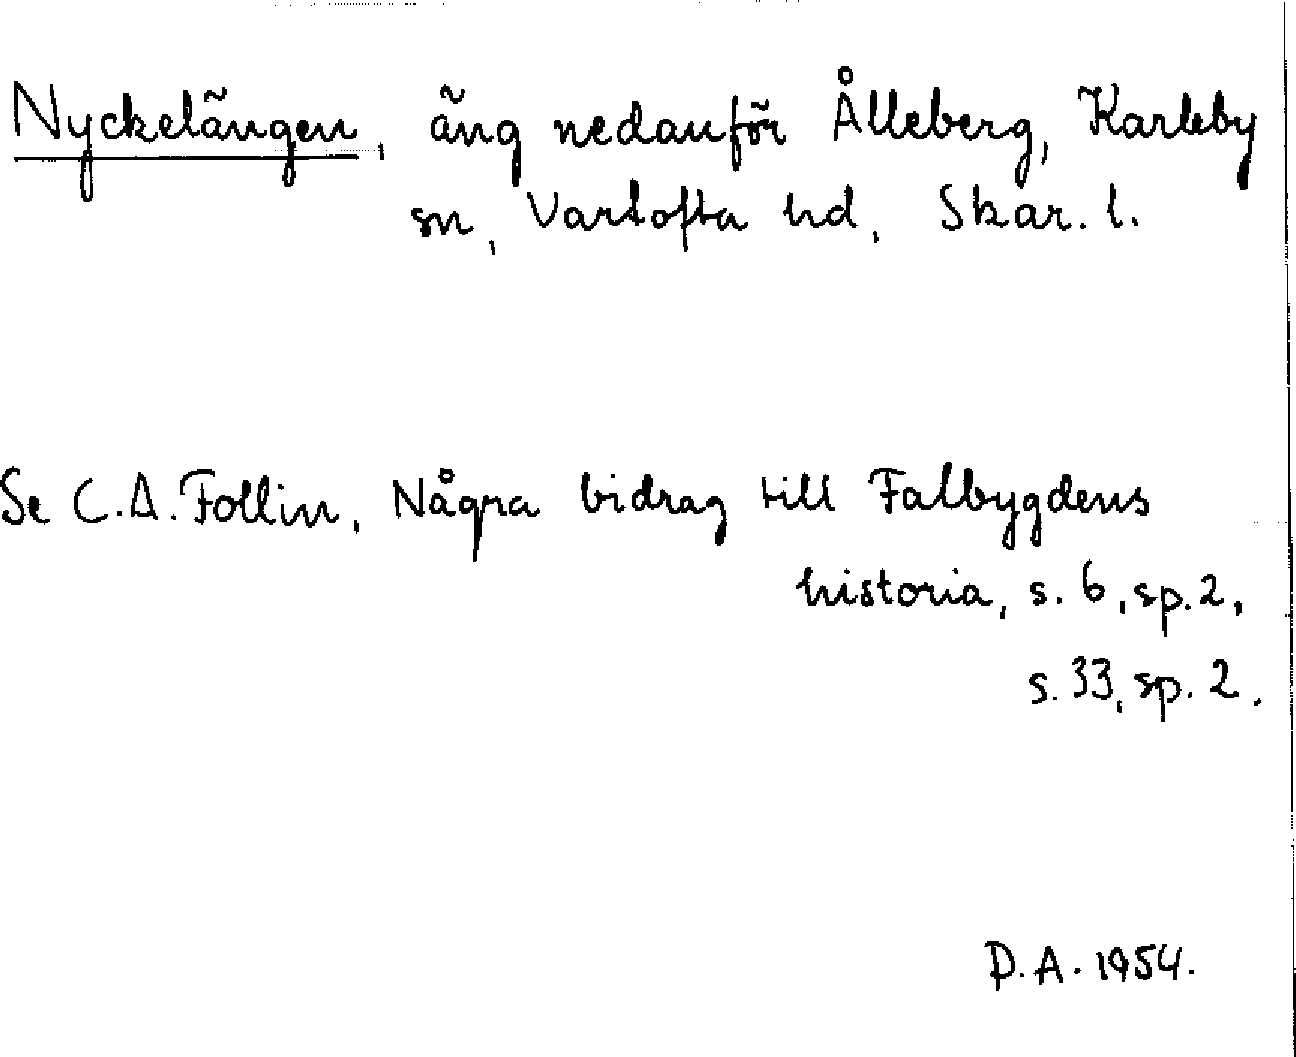 Nyckelängen, äng nedanför Ålleberg, Karleby
sn, Vartofta hd, Skar. l.
Se C.A. Follin, Några bidrag till Falbygdens
historia, s. 6, sp. 2,
s. 33, sp. 2.
D.A. 1954.